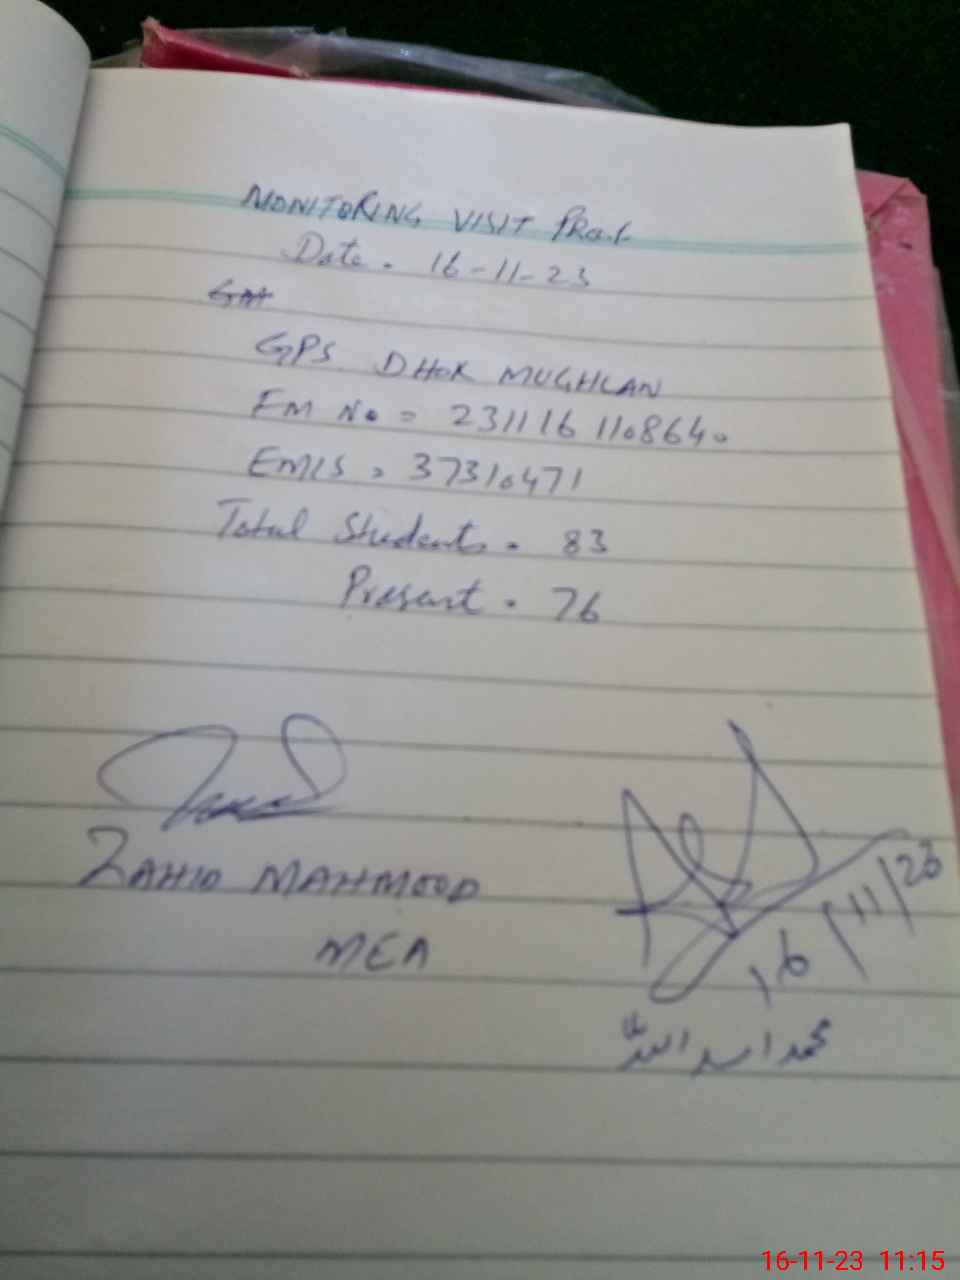 MONITORING VISIT PRoof
Date. 16-11-23
GPS. DHOK MUGHLAN
EM No = 231116 110864.
EMIS = 37310471
Total Students = 83
Present = 76
ZAHID MAHMOOD
MEA
16/11/23
محمد اسد اللہ
16-11-23 11:15